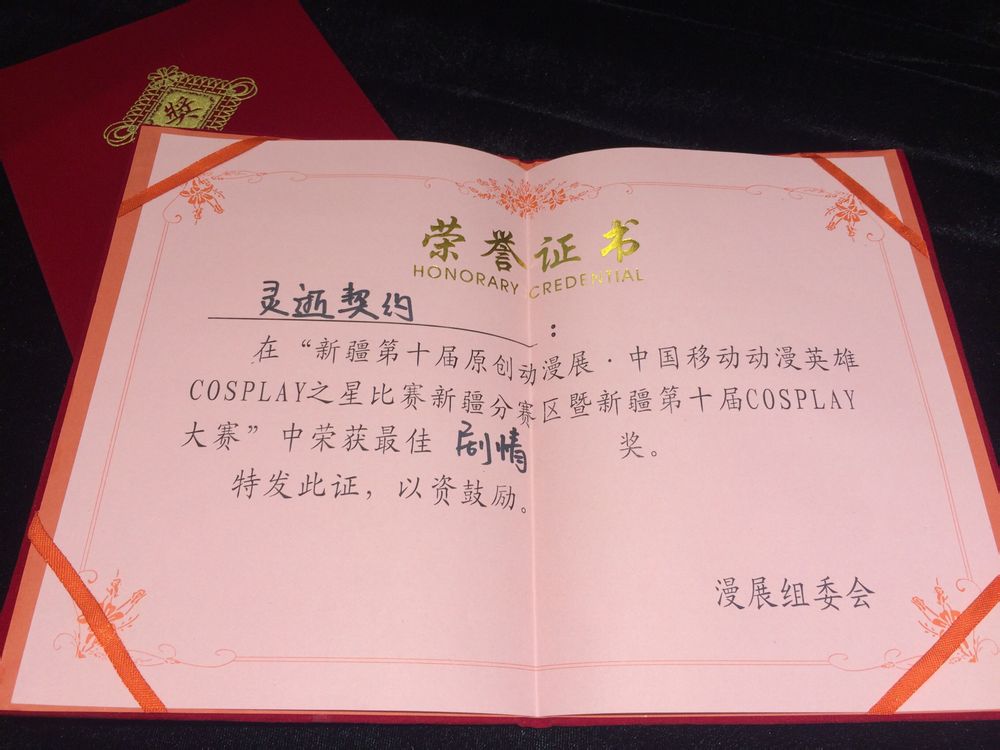 奖
荣誉证书
HONORARY CREDENTIAL
灵逝契约：
在“新疆第十届原创动漫展·中国移动动漫英雄
COSPLAY之星比赛新疆分赛区暨新疆第十届COSPLAY
大赛”中荣获最佳 剧情 奖。
特发此证，以资鼓励。
漫展组委会